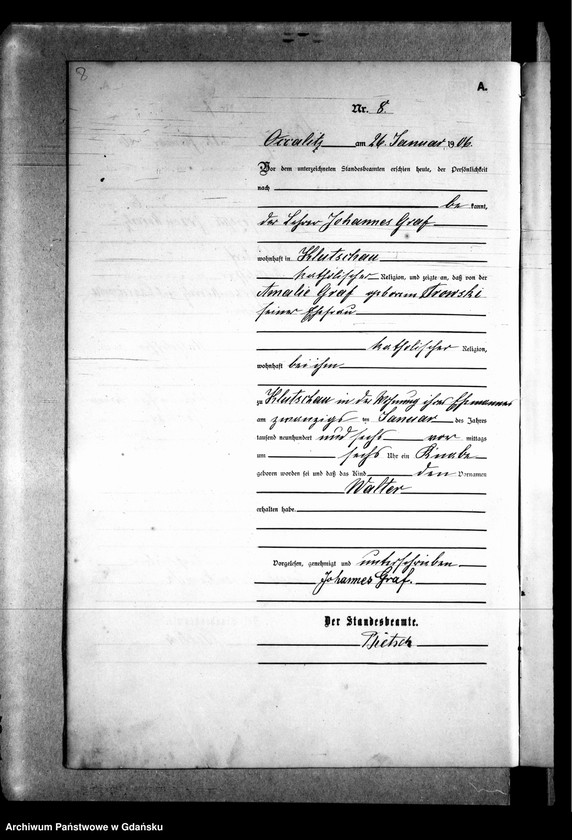 8
A.
Nr. 8.
Occalitz am 26. Januar 1906.
Vor dem unterzeichneten Standesbeamten erschien heute, der Persönlichkeit
nach
be kannt,
der Lehrer Johannes Graf
wohnhaft in Klutschau
katholischer Religion, und zeigte an, daß von der
Amalie Graf geborenen
seiner Ehefrau
katholischer Religion,
wohnhaft bei ihm
zu Klutschau in der Wohnung ihres Ehemannes
am zwanzigsten Januar des Jahres
tausend neunhundert und sechs vor mittags
um sechs Uhr ein Knabe
geboren worden sei und daß das Kind den Vornamen
Walter
erhalten habe.
Vorgelesen, genehmigt und unterschrieben
Johannes Graf.
Der Standesbeamte.
Archiwum Państwowe w Gdańsku